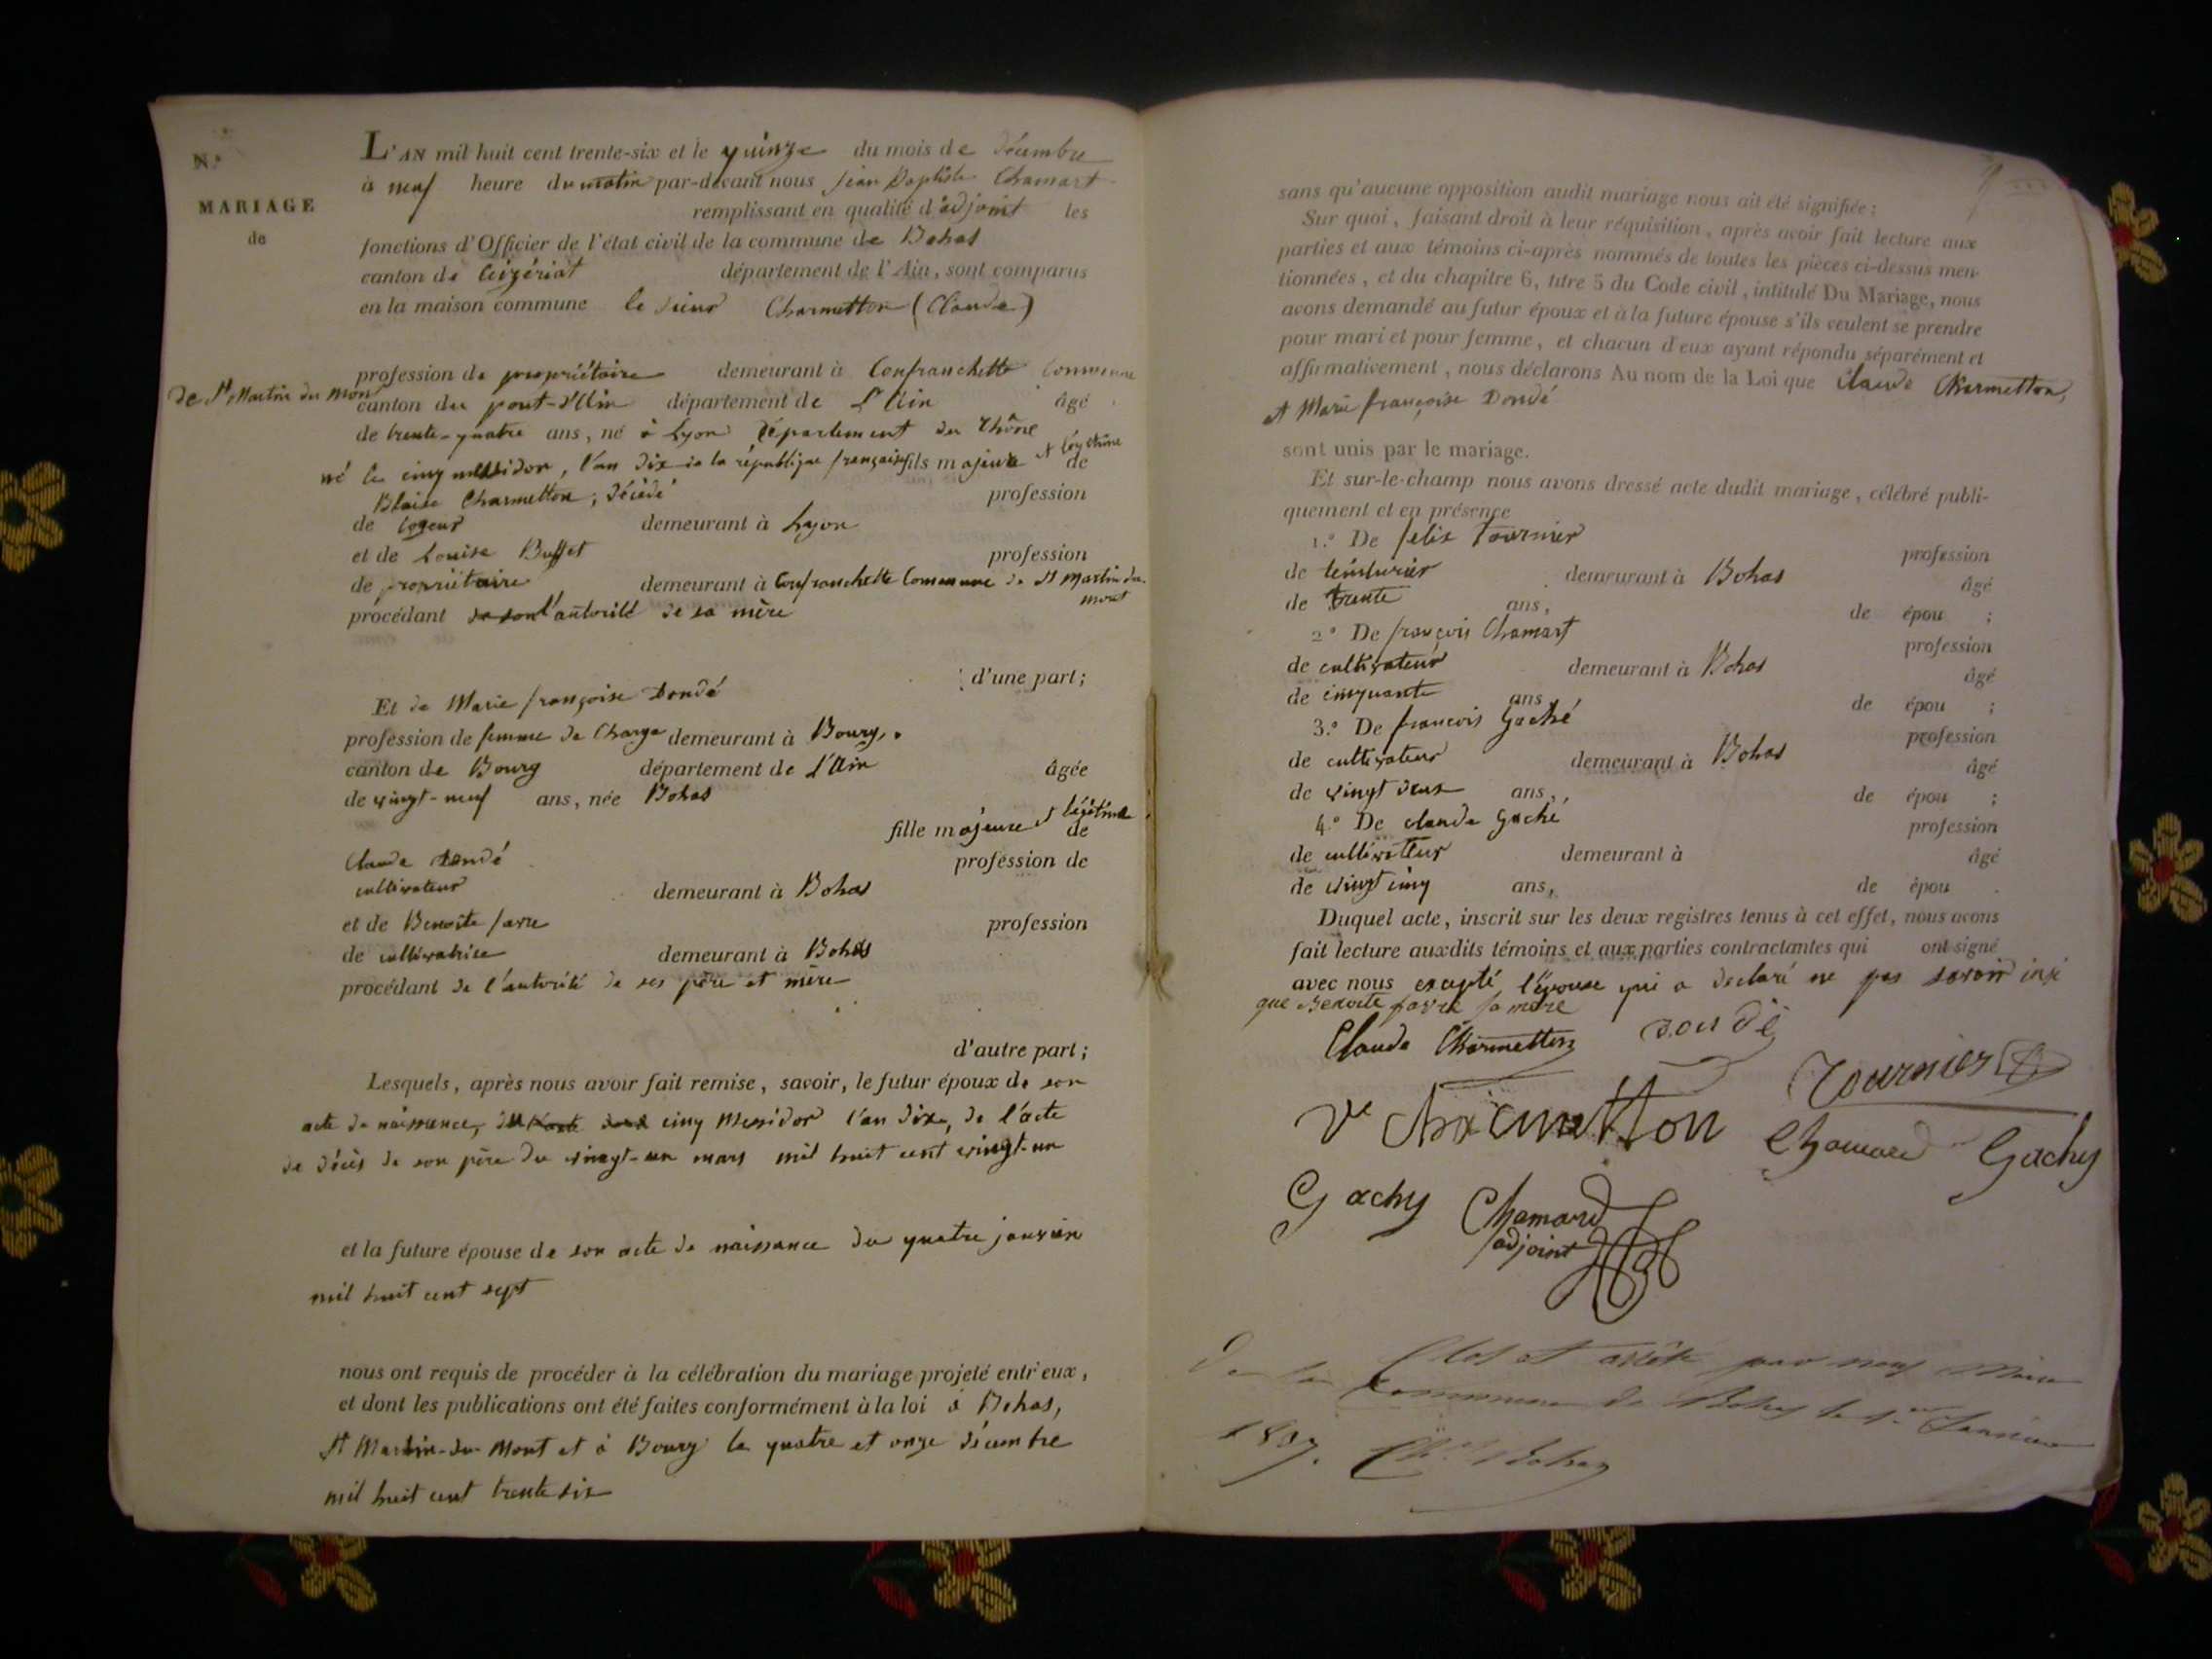 N.º
MARIAGE
de
L'AN mil huit cent trente-six et le quinze du mois de décembre
à neuf heure du matin par-devant nous Jean Baptiste Chamart
remplissant en qualité d'adjoint les
fonctions d'Officier de l'état civil de la commune de Bohas
canton de Ceizériat département de l'Ain, sont comparus
en la maison commune le sieur Charmetton (Claude)
profession de propriétaire demeurant à Confranchette Commune
de St Martin du Mont
canton du pont-d'Ain département de L'Ain âgé
de trente-quatre ans, né à Lyon département du Rhône
né le cinq messidor, l'an dix de la république française fils majeur et légitime de
Blaise Charmetton, décédé profession
de logeur demeurant à Lyon
et de Louise Buffet profession
de propriétaire demeurant à Confranchette Commune de St Martin du
mont
procédant de son l'autorité de sa mère
d'une part;
Et de Marie françoise Dondé
profession de femme de Charge demeurant à Bourg,
canton de Bourg département de L'Ain âgée
de vingt-neuf ans, née Bohas
fille majeure et légitime de
Claude Dondé profession de
cultivateur demeurant à Bohas
et de Benoite favre profession
de cultivatrice demeurant à Bohas
procédant de l'autorité de ses père et mère
d'autre part;
Lesquels, après nous avoir fait remise, savoir, le futur époux de son
acte de naissance, du cinq Messidor l'an dix, de l'acte
de décès de son père du vingt-un mars mil huit cent vingt-un
et la future épouse de son acte de naissance du quatre janvier
mil huit cent sept
nous ont requis de procéder à la célébration du mariage projeté entr'eux,
et dont les publications ont été faites conformément à la loi à Bohas,
St Martin-du-Mont et à Bourg le quatre et onze décembre
mil huit cent trente six
sans qu'aucune opposition audit mariage nous ait été signifiée;
Sur quoi, faisant droit à leur réquisition, après avoir fait lecture aux
parties et aux témoins ci-après nommés de toutes les pièces ci-dessus men-
tionnées, et du chapitre 6, titre 5 du Code civil, intitulé Du Mariage, nous
avons demandé au futur époux et à la future épouse s'ils veulent se prendre
pour mari et pour femme, et chacun d'eux ayant répondu séparément et
affirmativement, nous déclarons Au nom de la Loi que Claude Charmetton,
et Marie françoise Dondé
sont unis par le mariage.
Et sur-le-champ nous avons dressé acte dudit mariage, célébré publi-
quement et en présence
1.º De felix Tournier profession
de teinturier demeurant à Bohas âgé
de trente ans, de épou ;
2.º De françois Chamart profession
de cultivateur demeurant à Bohas âgé
de cinquante ans de épou ;
3.º De francois Gaché profession
de cultivateur demeurant à Bohas âgé
de vingt deux ans, de épou ;
4.º De claude Gaché profession
de cultivateur demeurant à âgé
de vingt cinq ans, de épou .
Duquel acte, inscrit sur les deux registres tenus à cet effet, nous avons
fait lecture auxdits témoins et aux parties contractantes qui ont signé
avec nous excepté l'épouse qui a declaré ne pas savoir insi
que Benoite favre sa mère
Claude Charmetton Dondé
Tournier
Ve Charmetton Chamard Gachy
Gachy Chamard
adjoint
Clos et arrêté par nous Maire
de la Commune de Bohas le 1er Janvier
1837.